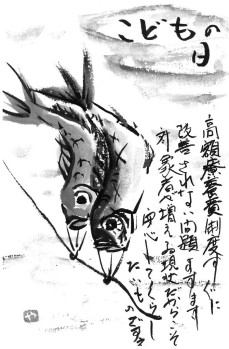 こどもの
日
高額療養費制度すぐに
改善されない問題ますます
対象者が増える現状だからこそ
用心してくらし
たいものです
や